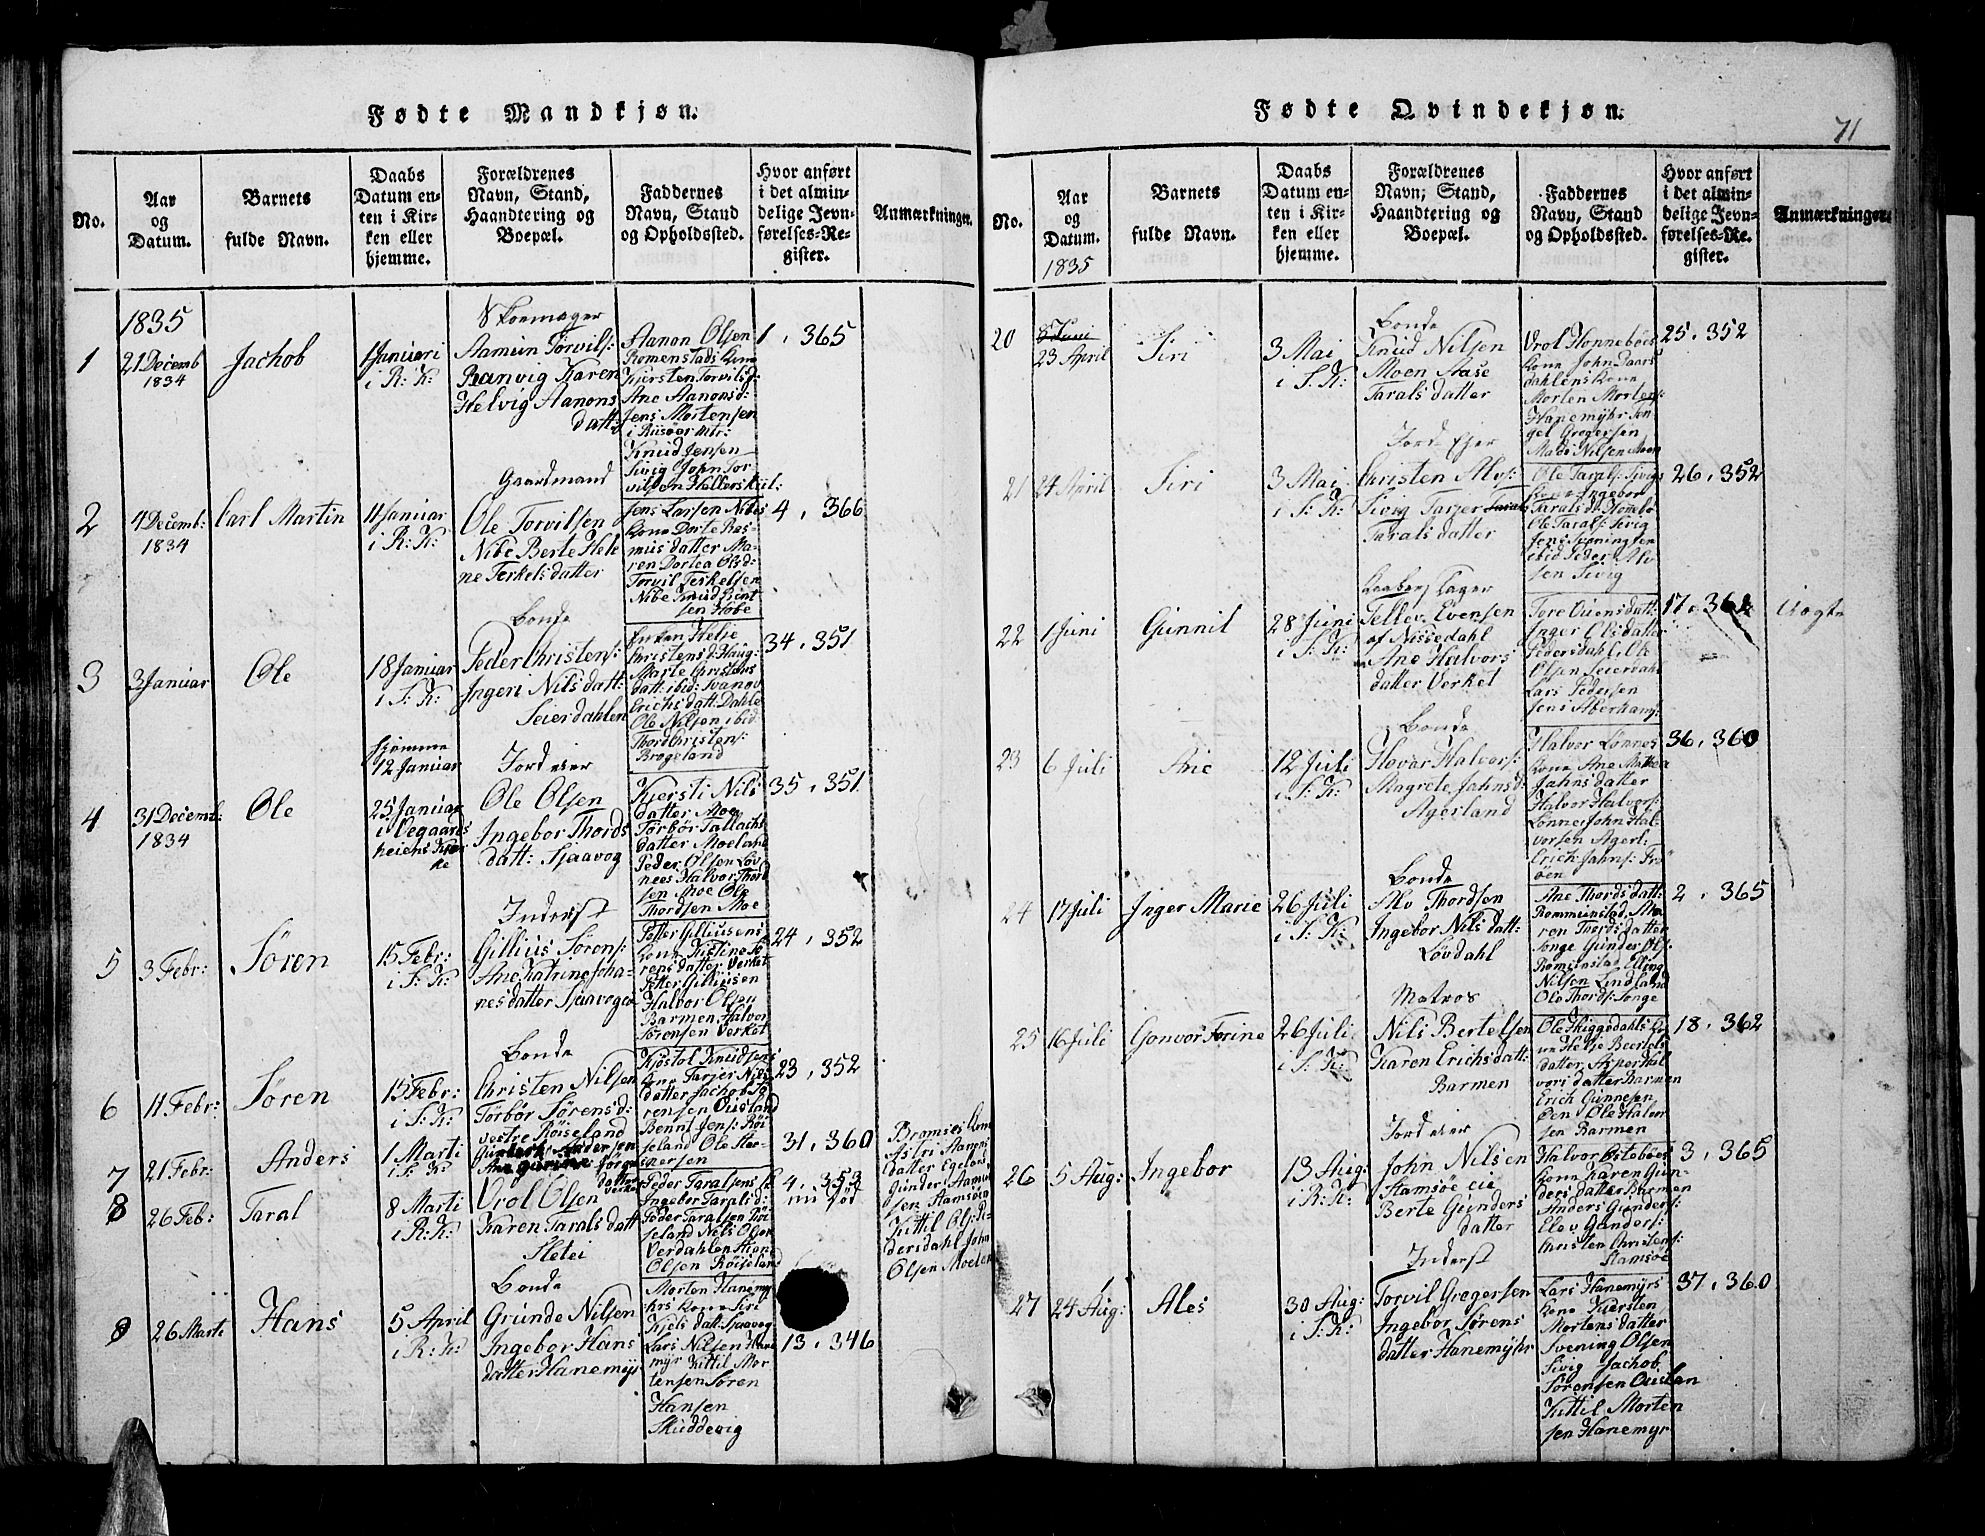 Fødte Mandkjøn.
No.
Aar
og
Datum.
Barnets
fulde Navn.
Daabs
Datum en-
ten i Kir-
ken eller
hjemme.
Forældrenes
Navn, Stand,
Haandtering og
Boepæl.
Faddernes
Navn, Stand
og Opholdssted.
Hvor anført
i det almin-
delige Jevn-
førelses-Re-
gister.
Anmærkninger.
1835
1
21 Decemb
1834
Jachob
1 Januari
i R: K:
Skoemager
Aamun Torvils:
Ranvig Karen
Helvig Aanons
datt:
Aanon Olsen
Romenstads kone
Kjersten Torvilsd:
Ane Aanonsd:
Jens Mortensen
i Riisøer
Knud Jensen
Sivig John Tor-
vilsen Hellerskiil:
1, 365
2
4 Decemb:
1834
Carl Martin
11 Januar
i R: K:
Gaardmand
Ole Torvilsen
Nibe Berte Hele
ne Terkelsdatter
Jens Larsen Nibes
kone Dorte Ras-
mus datter Ma-
ren Dortea Olsd:
Torvil Terkelsen
Nibe Knud
sen Hobe
4, 366
3
3 Januar
Ole
18 Januar
i S: K:
Bonde
Peder Christens:
Ingeri Nils datt:
Seierdahlen
Enken Helje
Christensd: Haug:
Marte Christens
datt: ibid:
Erichs datt: Dahle
Ole Nilsen ibid
Thord Christens:
Brogeland
34, 351
4
31 Decemb:
1834
Ole
hjemme
12 Januar
25 Januar
i Vegaards
heiens Kir
ke
Jordeier
Ole Olsen
Ingebor Thords
datt: Sjaavog
Kjersti Nils
datter Moe
Torbør Tallachs
datter Moeland
Peder Olsen Løv
nees Halvor Thord
sen Moe Ole
Thordsen Moe
35, 351
5
3 Febr:
Søren
15 Febr:
i S: K:
Inderst
Gillius Sørens:
Ane Katrine Joha-
nesdatter Sjaavog
Petter Gilliusens
kone Kistine Sø
rens datter Verket
Petter Gilliusen
Halvor Olsen
Barmen Halvor
Sørensen Verket
24, 352
6
11 Febr:
Søren
15 Febr:
i S: K:
Bonde
Christen Nilsen
Torbør Sørensd:
vestre Røiseland
Kjøstol Knudsens
kone Tarjer Nils
datter Jachob Sø
rensen Ousland
Bennt Jens: Røi
seland Ole
23, 352
7
21 Febr:
Anders
1 Marti
i S: K:
Andersen
Ane
datter
Verket
31, 360
Bromses kone
Astri Aamuns
datter Egeland
Gunder Aamun
sen Stamsøen
Kittil Ols: Pe-
dersdahl John
Olsen Moelan
8
26 Feb:
Taral
8 Marti
i R: K:
Vrol Olsen
Karen Tarals datt
Sletei
Peder Taralsens
Ingebor Tarals d:
Peder Taralsen Røi
seland Nils Olsen
Verdahlen
Olsen Røiseland
4, 353
9
26 Marti
Hans
5 April
i R: K:
Bonde
Grunde Nilsen
Ingebor Hans
datter Hanemyr
Morten Hanem
yrs kone Siri
Kjels datt: Sjaavog
Lars Nilsen Hane
myr Kittil Mor
tensen Søren
Hansen
Skuddevig
13, 346
Fødte Qvindekjøn.
71
No.
Aar
og
Datum.
1835
Barnets
fulde Navn.
Daabs
Datum en-
ten i Kir-
ken eller
hjemme.
Forældrenes
Navn, Stand,
Haandtering og
Boepæl.
Faddernes
Navn, Stand
og Opholdssted.
Hvor anført
i det almin-
delige Jevn-
førelses-Re-
gister.
Anmærkninger.
20
8 Juni
23 April
Siri
3 Mai
i S: K:
Bonde
Knud Nilsen
Moen Aase
Tarals datter
Vrol Honnebøes
kone John Daars
dahlens kone
Morten Mortens:
Hanemyhr
Gregersen
Mads Nilsen Moen
25, 352
21
24 April
Siri
3 Mai
i S: K:
Jord Ejer
Christen Alvs:
Sivig Tarjer
Tarals datter
Ole Tarals: Sivigs
kone Ingebor
Tarals d: Honebø
Ole Tarals: Sivig
Jens
ibid Peder Alv
sen Sivig
26, 352
22
1 Juni
Gunnil
28 Juni
i S: K:
Tellev Evensen
af Nissedahl
Ane Halvors
datter Verket
Tore datt:
Inger Olsdatter
Pedersdahl, Ole
Olsen Seierdahl
Lars Pedersen
Jens
17, 362
Uægte
23
6 Juli
Ane
12 Juli
i S: K:
Bonde
Hovar Halvors:
Magrete Jahnsd:
Agerland
Halvor Lønnes
kone Ane
Jahnsdatter
Halvor Halvors:
Lønnes John Hal
vorsen Agerl:
Erich Jahns:
øen
36, 360
24
17 Juli
Inger Marie
26 Juli
i S: K:
Bonde
Alv Thordsen
Ingebor Nils datt:
Løvdahl
Ane Thords datt:
Rommunstad, Ma
ren Thords datter
Songe Gunder Ols:
Romunstad Elling
Nilsen Lindland
Ole Thords: Songe
2, 365
25
16 Juli
Gonvor Torine
26 Juli
i S: K:
Matros
Nils Bertelsen
Karen Erichs datt:
Barmen
Ole Skiggedahls ko
ne Helje Beertels
datter,
datter Barmen
Erich Gunnesen
Øen Ole Halvor
sen Barmen
18, 362
26
5 Aug:
Ingebor
13 Aug:
i R: K:
Jordeier
John Nilsen
Stamsøe
Berte Gunders
datter
Halvor Østebøes
kone Karen Gun-
ders datter Barmen
Anders Gunders:
Elev Gunders:
Christen Christens:
Stamsøe
3, 365
27
24 Aug:
Ales
30 Aug:
i S: K:
Inderst
Torvil Gregersen
Ingebor Sørens
datter Hanemyhr
Lars Hanemyrs
kone Kjersten
Mortens datter
Svening Olsen
Sivig Jachob
Sørensen Ouslan
Kittil Morten
sen Hanemyr
37, 360